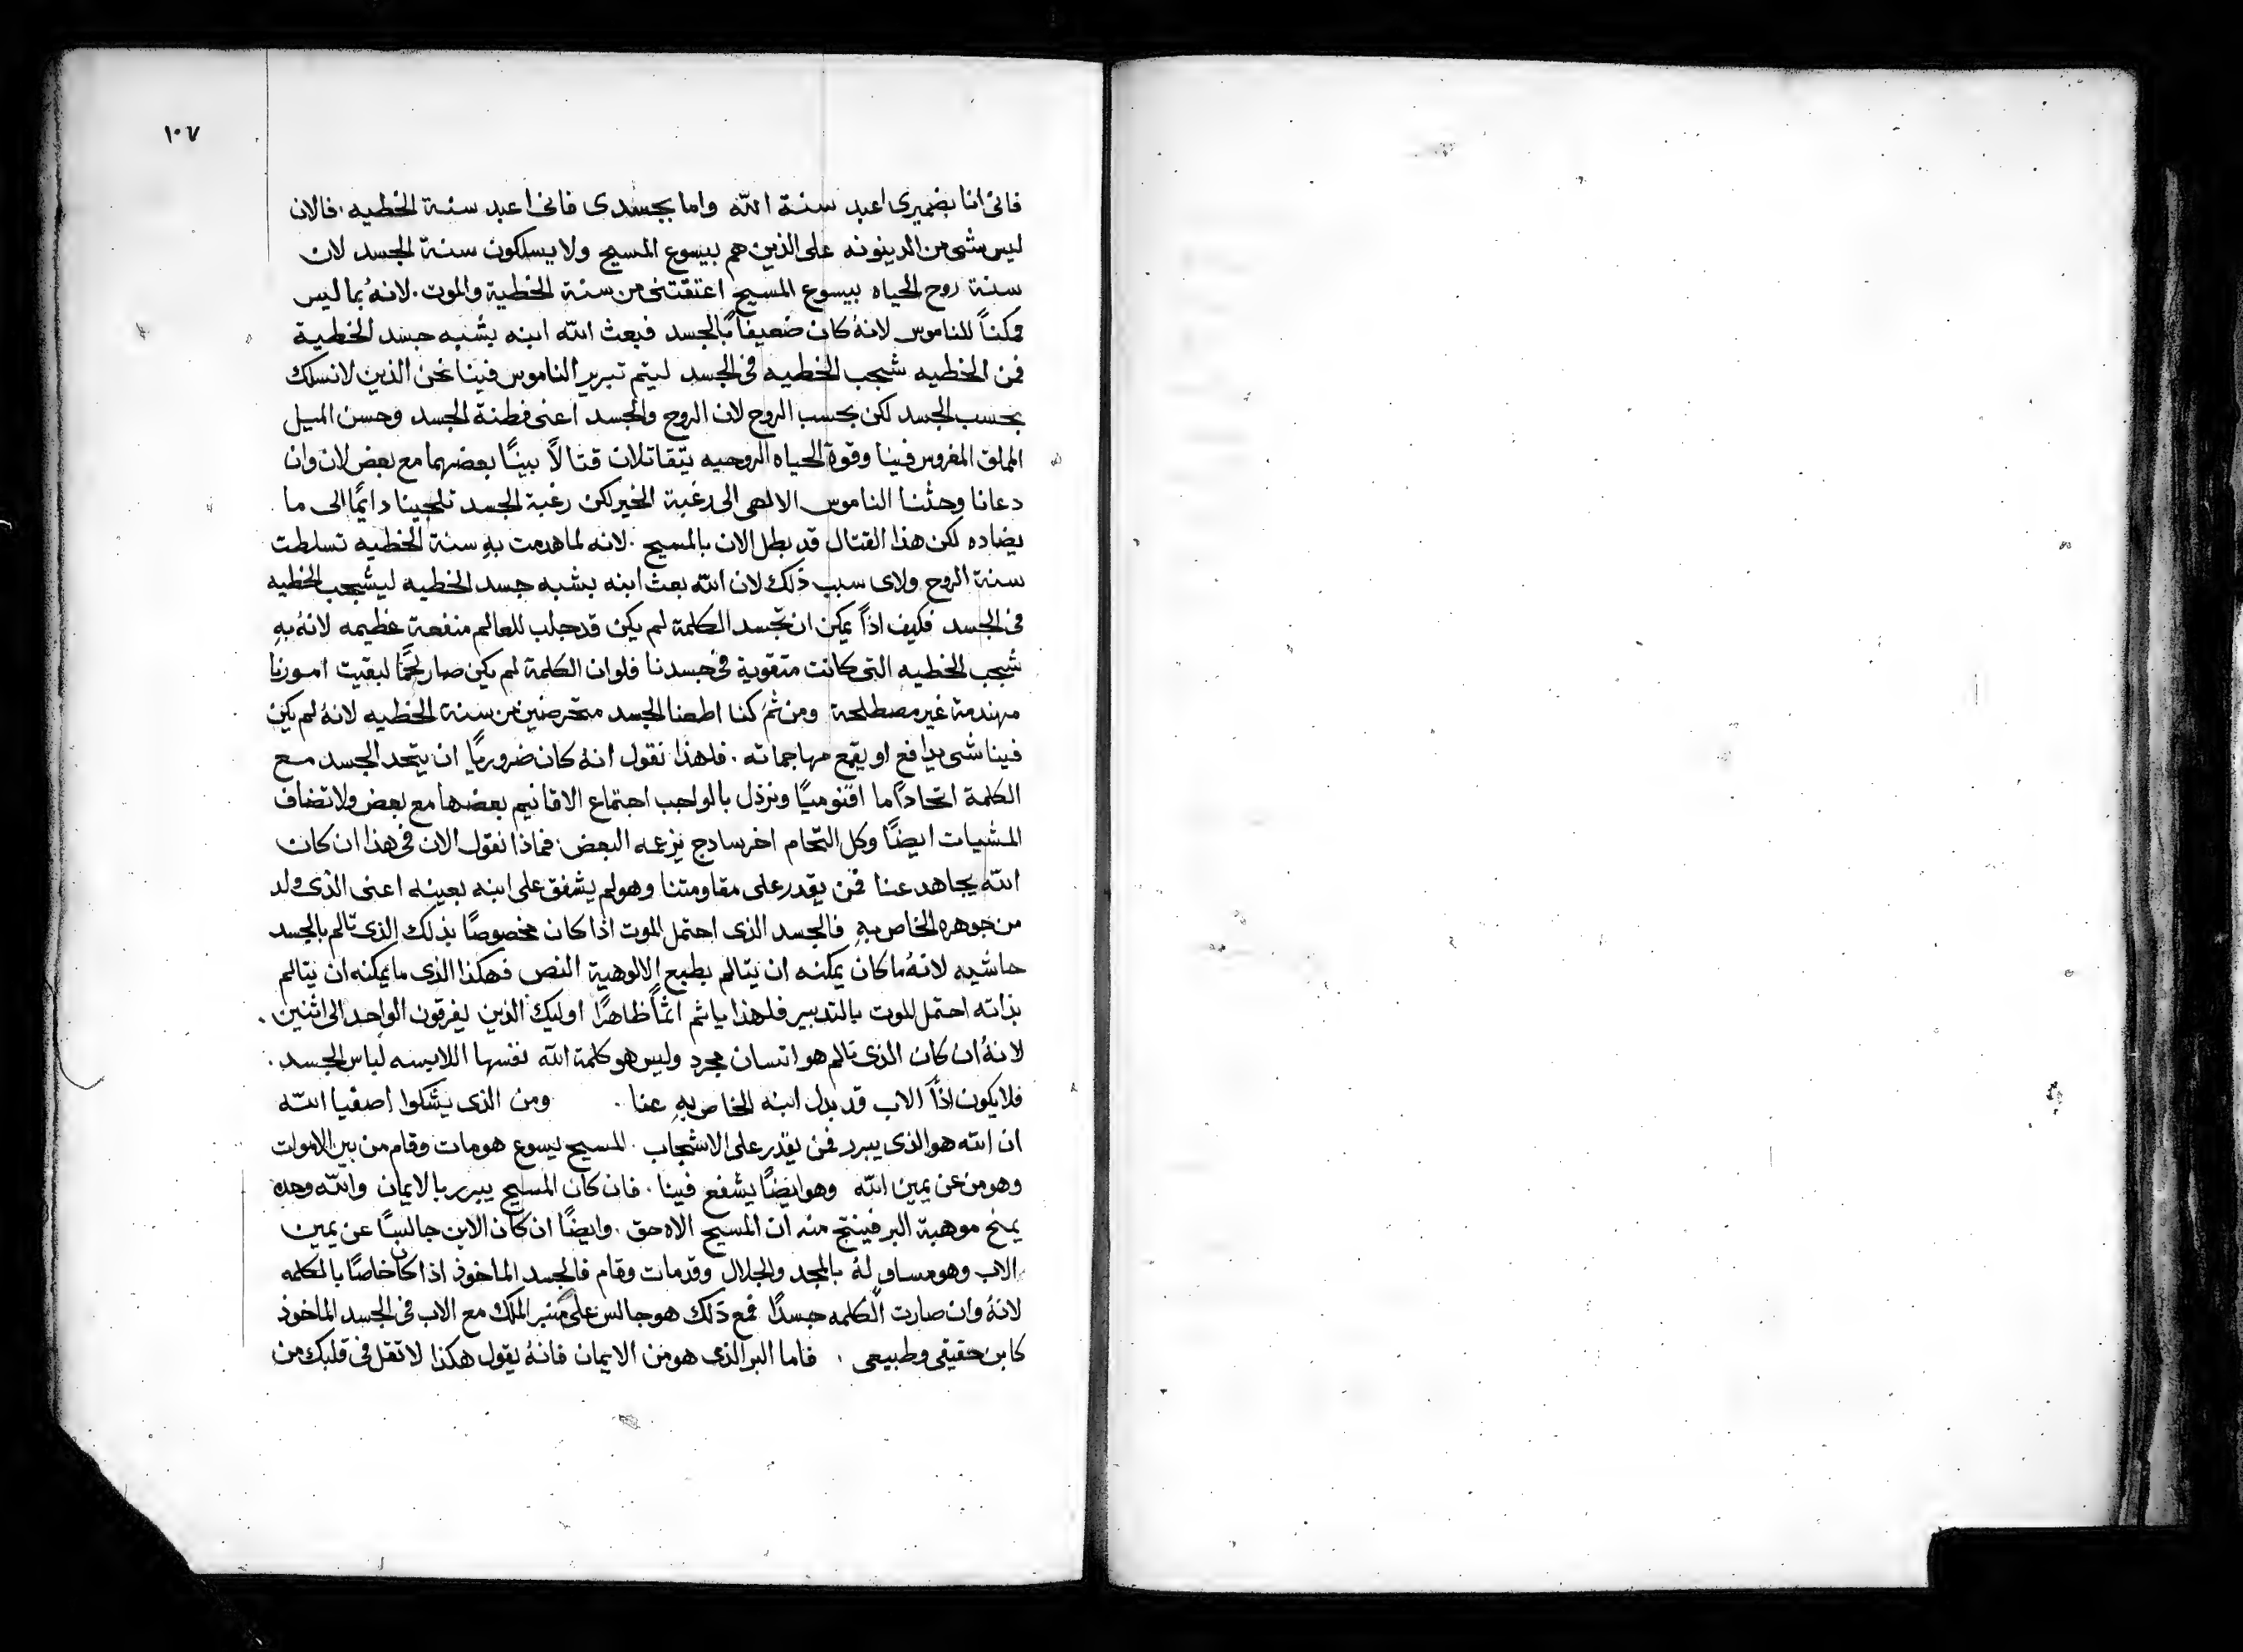 ١٠٧
فانى انا بضميرى اعبد سنة الله واما بجسدى فانى اعبد سنة الخطيه . فالان
ليس شى من الدينونه على الذين هم بيسوع المسيح ولا يسلكون سنة الجسد لان
سنة روح الحياه بيسوع المسيح اعتقتنى من سنة الخطية والموت . لانهُ بما ليس
ممكناً للناموس لانهُ كان ضعيفاً بالجسد فبعث الله ابنه بشبه جسد الخطية
فمن الخطيه شجب الخطيه فى الجسد ليتم تبرير الناموس فينا نحن الذين لا نسلك
بحسب الجسد لكن بحسب الروح لان الروح والجسد اعنى فطنة الجسد وحسن الميل
المملق المغروس فينا وقوة الحياه الروحيه يتقاتلان قتالاً بينًا بعضهما مع بعض لان وان
دعانا وحثنا الناموس الالهى الى رغبة الخير لكن رغبة الجسد تلجينا دايمًا الى ما
يضاده لكن هذا القتال قد بطل الان بالمسيح . لانه لما هدمت بهِ سنة الخطيه تسلطت
سنة الروح ولاى سبب ذلك لان الله بعث ابنه بشبه جسد الخطيه ليشجب الخطيه
فى الجسد فكيف اذاً يمكن ان تجسد الكلمة لم يكن قد جلب للعالم منفعة عظيمه لانهُ بهِ
شجب الخطيه التى كانت متقوية فى جسدنا فلو ان الكلمة لم يكن صار لحمًا لبقيت امورنا
مهندمة غير مصطلحة ومن ثمَ كنا اطعنا الجسد متحرضين من سنة الخطيه لانهُ لم يكن
فينا شى يدافع او يقمع مهاجماته . فلهذا نقول انهُ كان ضروريًا ان يتحد الجسد مع
الكلمة اتحادًا ما اقنوميًا ونرذل بالواجب اجتماع الاقانيم بعضها مع بعض ولا تضاف
المشيات ايضًا وكل التحام اخر سادج يزعمه البعض . فماذا نقول الان فى هذا ان كان
الله يجاهد عنا فمن يقدر على مقاومتنا وهو لم يشفق على ابنه بعينه اعنى الذى ولد
من جوهره الخاص بهِ فالجسد الذى احتمل الموت اذا كان مخصوصًا بذلك الذى تالم بالجسد
حاشيه لانهُ ما كان يمكنه ان يتالم بطبع الالوهية النص فهكذا الذى ما يمكنه ان يتالم
بذاته احتمل الموت بالتدبير فلهذا ياثم اثماً ظاهرًا اوليك الذين يفرقون الواحد الى اثنين .
لانهُ ان كان الذى تالم هو انسان مجرد وليس هو كلمة الله نفسها اللابسه لباس الجسد .
فلا يكون اذاً الاب قد بدل ابنه الخاص بهِ عنا . ومن الذى يشكوا اصفيا الله
ان الله هو الذى يبرر فمن يقدر على الاشجاب . المسيح يسوع هو مات وقام من بين الاموات
وهو من عن يمين الله وهو ايضًا يشفع فينا . فان كان المسيح يبرر بالايمان والله وحده
يمنح موهبة البر فينتج منه ان المسيح الاه حق . وايضًا ان كان الابن جالسًا عن يمين
الاب وهو مساوٍ لهُ بالمجد والجلال وقد مات وقام فالجسد الماخوذ اذا كان خاصًا بالكلمه
لانهُ وان صارت الكلمه جسدًا فمع ذلك هو جالس على منبر الملك مع الاب فى الجسد الماخوذ
كابن حقيقى وطبيعى . فاما البر الذى هو من الايمان فانهُ يقول هكذا لا تقل فى قلبك من